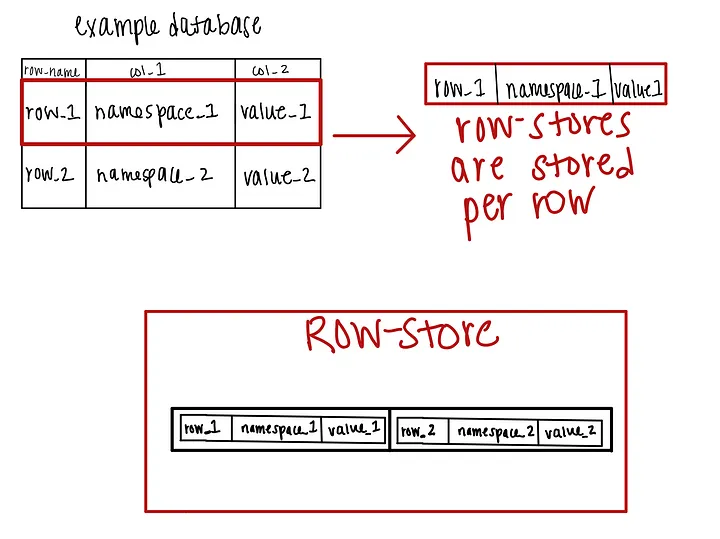 example database
row_name col_1 col_2
row_1 namespace_1 value_1
row_2 namespace_2 value_2
row_1 namespace_1 value1
row-stores
are stored
per row
Row-store
row_1 namespace_1 value_1 row_2 namespace_2 value_2